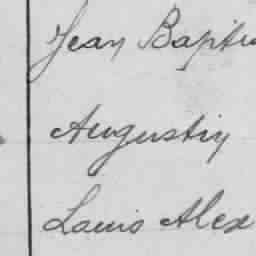 Jean Baptis
Augustin
Louis Alex